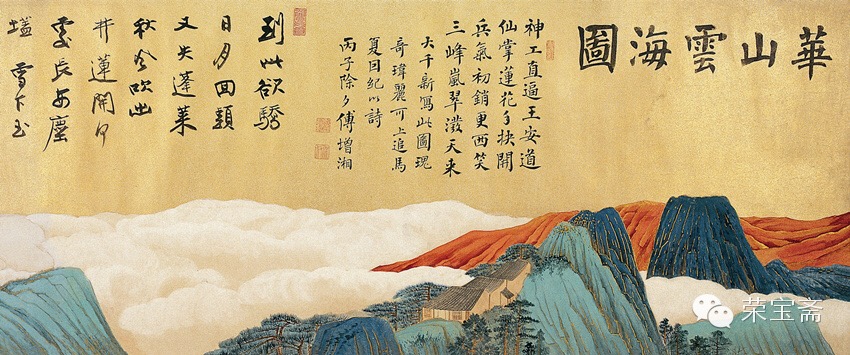 華山雲海圖
神工直逼王安道
仙掌蓮花手抉開
兵氣初銷更西笑
三峰嵐翠潑天来
大千新寫此圖瑰
奇瑋麗可上追馬
夏因紀以詩
丙子除夕傅增湘
到此欲驕
日月回頭
又失蓬莱
秋風吹出
井蓮開
長安塵
壒雪下玉
荣宝斋